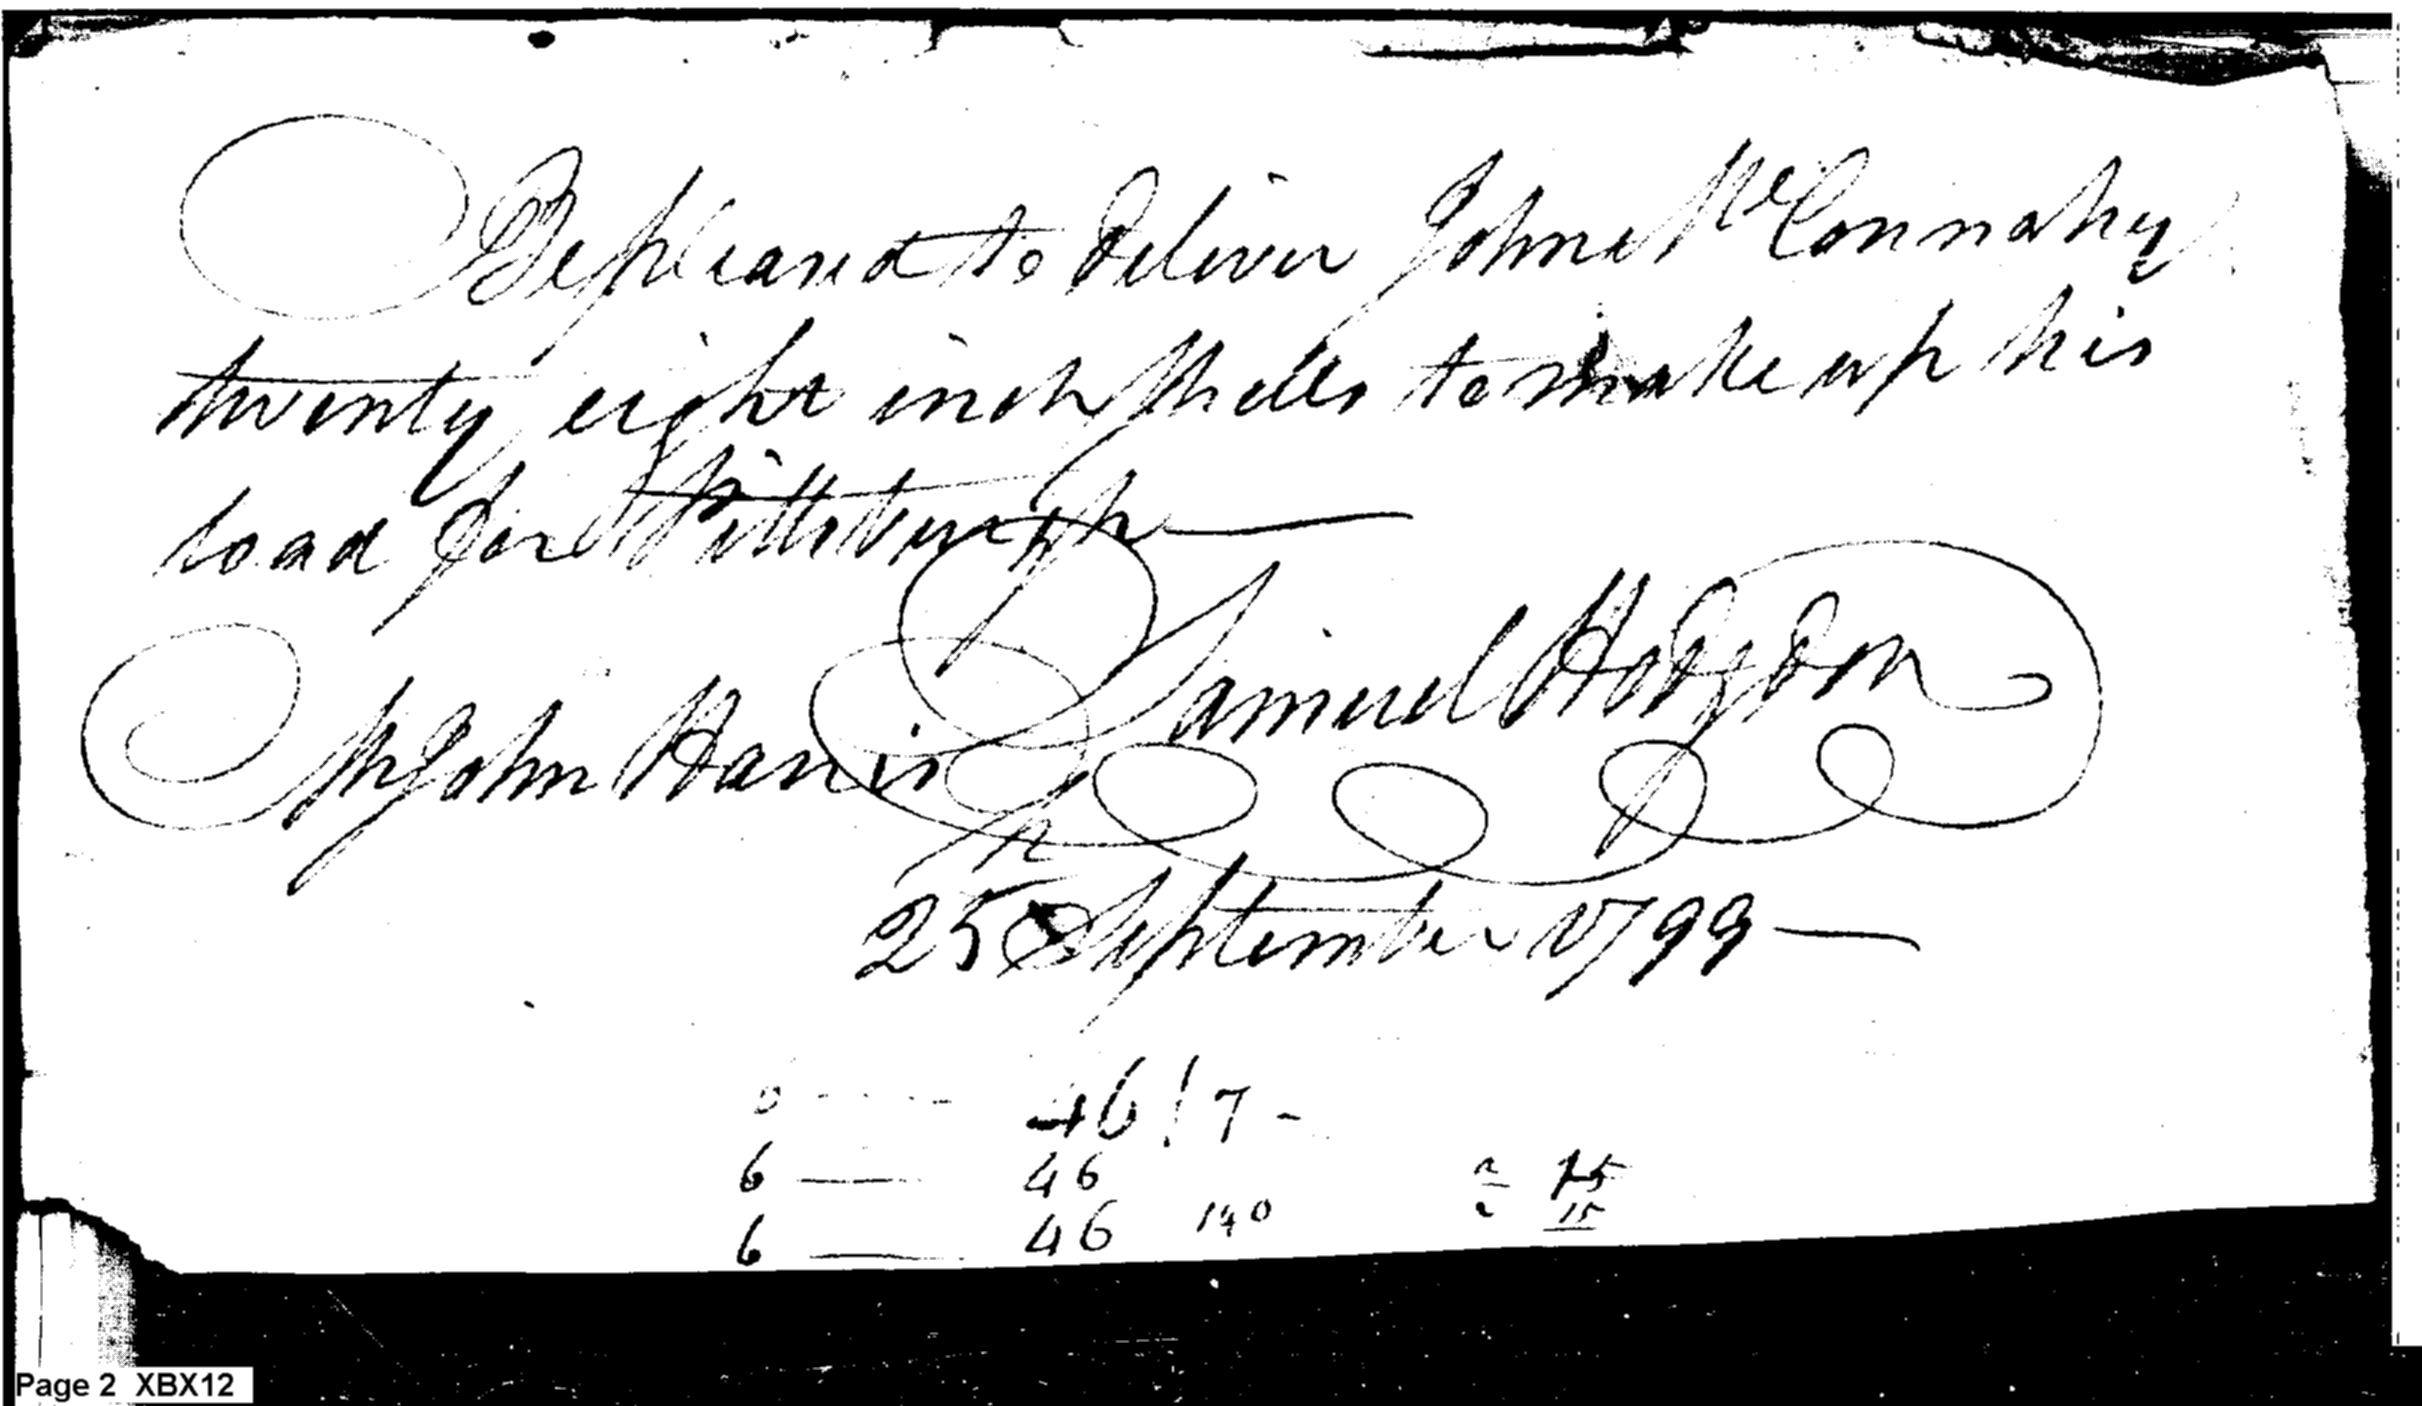 Be pleased to deliver John McConnahy
twenty eight inch shells to make up his
load for Pittsburgh
Samuel Hodgdon
Mr John Harris
25th September 1799
46 17
6 46
6 46 140
15
Page 2 XBX12